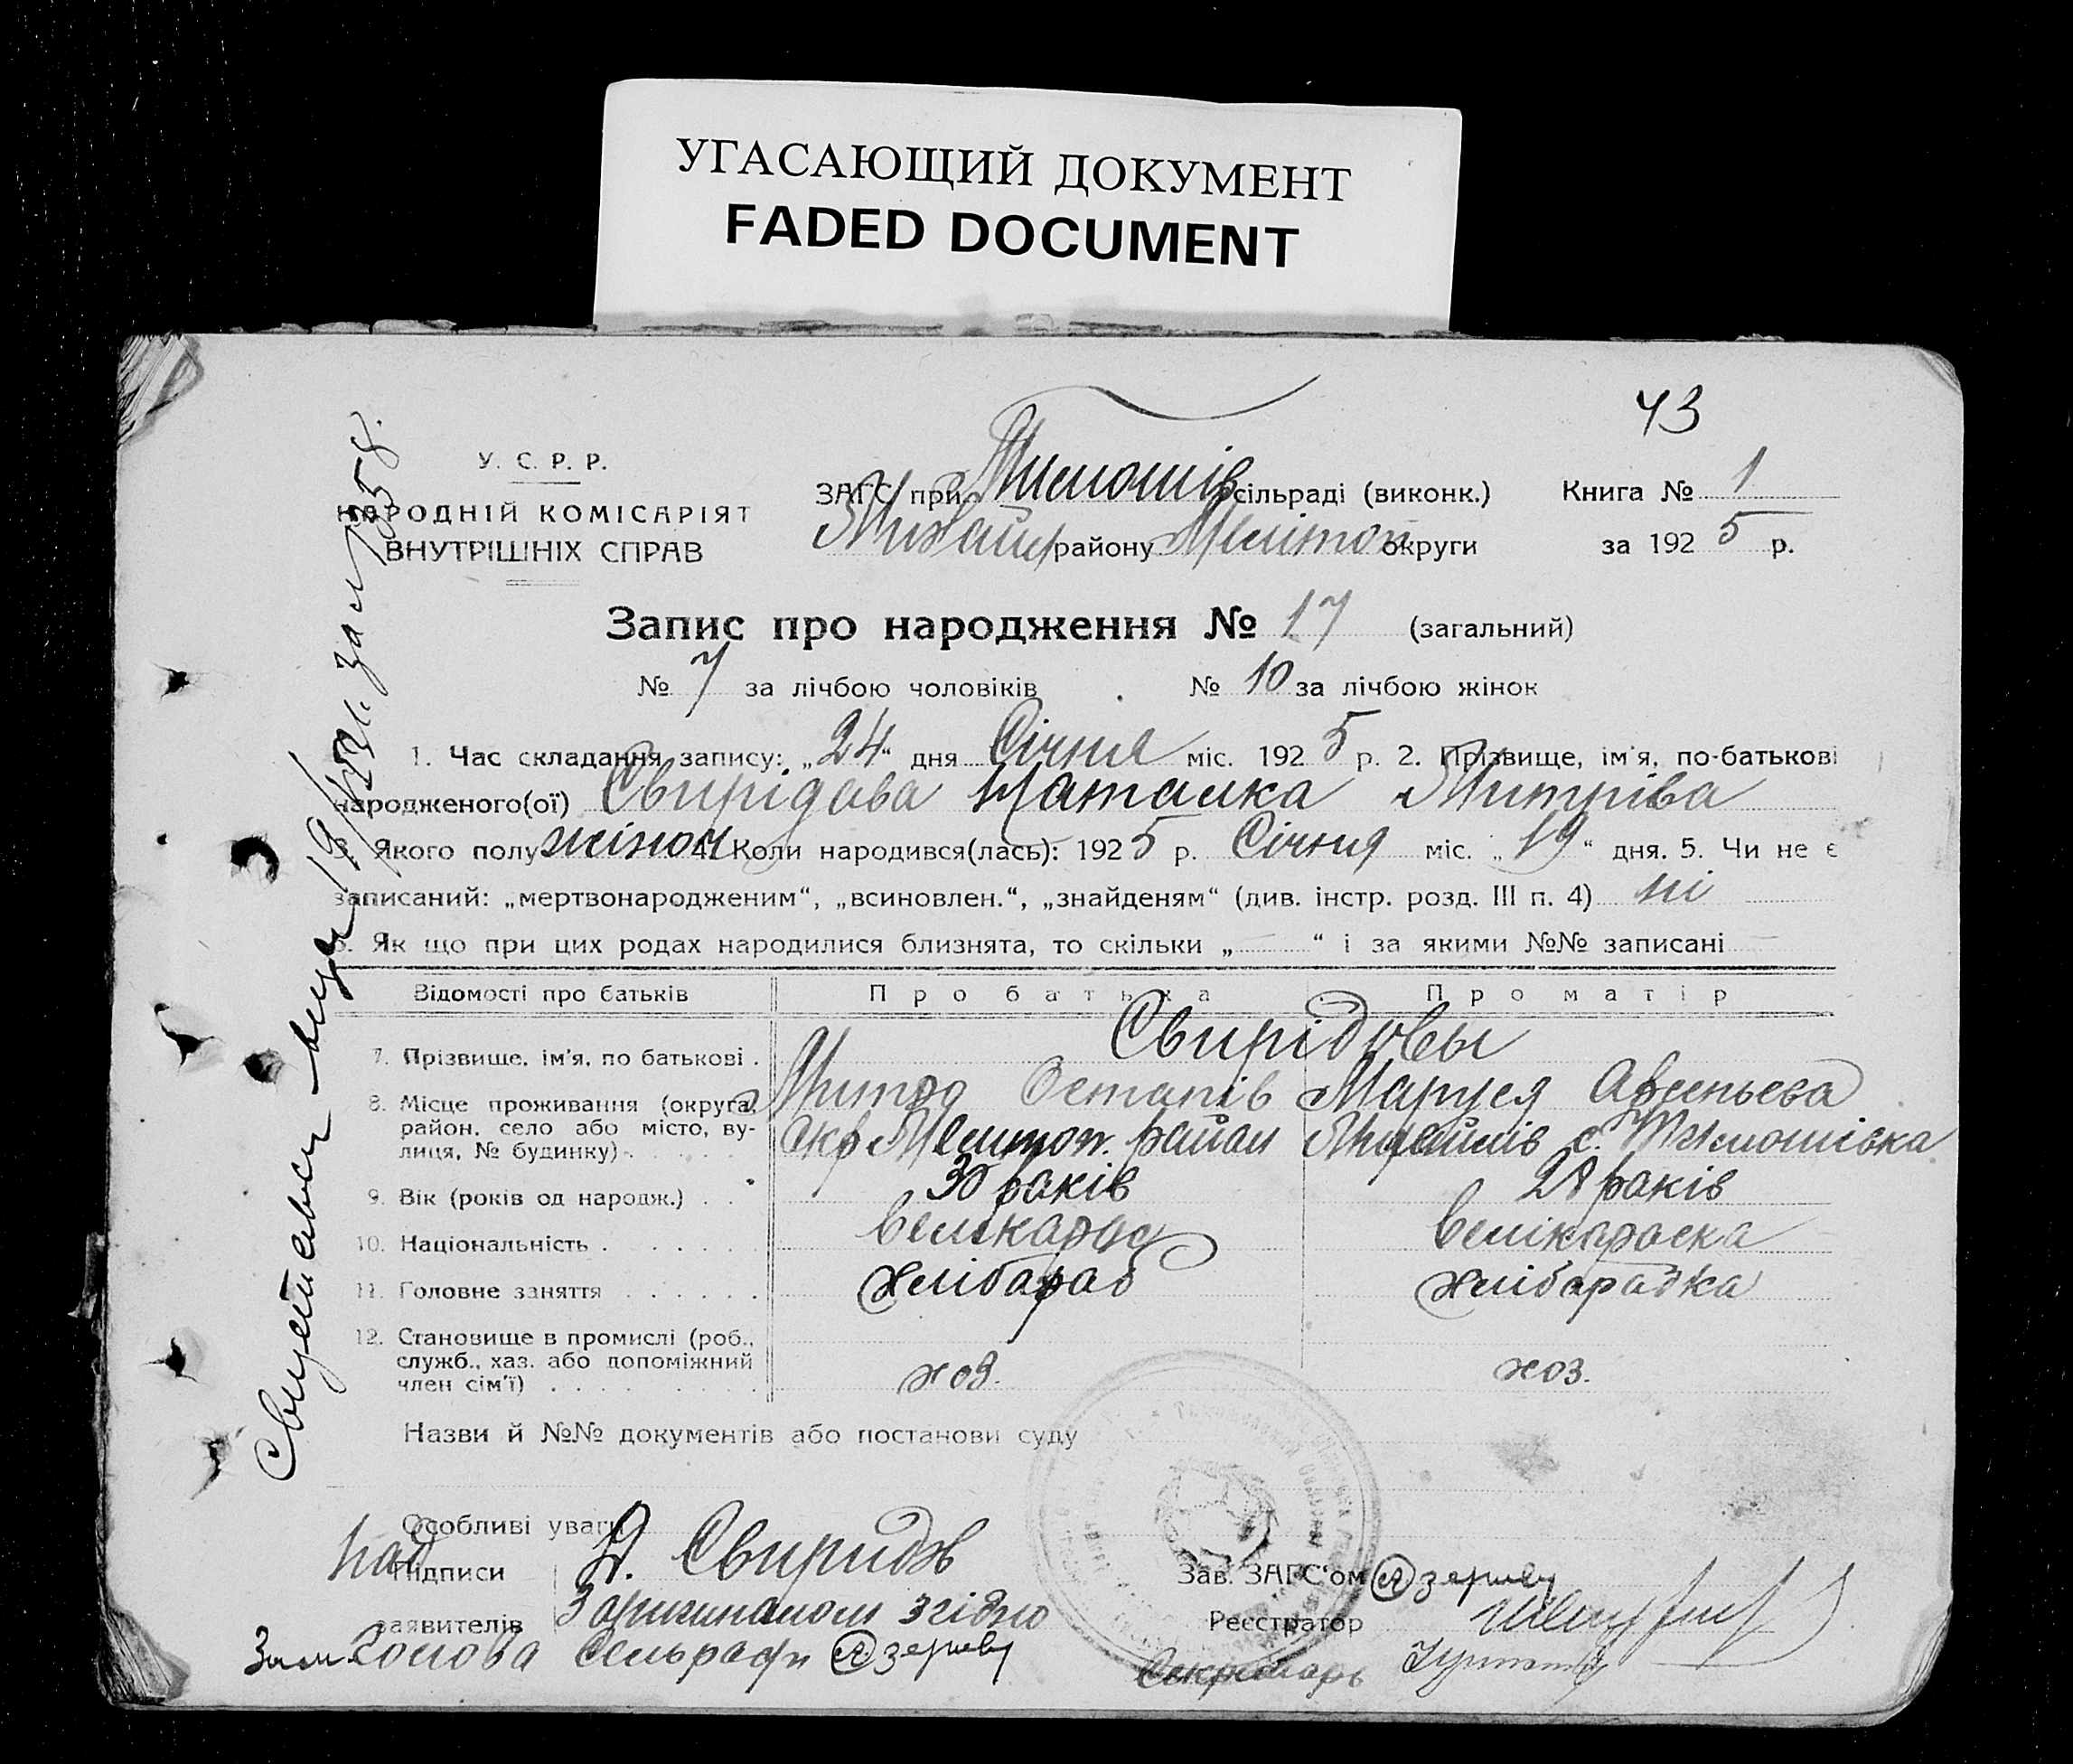 УГАСАЮЩИЙ ДОКУМЕНТ
FADED DOCUMENT
43
У. С. Р. Р.
НАРОДНІЙ КОМІСАРІЯТ
ВНУТРІШНІХ СПРАВ
ЗАГС при Тимошів сільраді (виконк.) Книга № 1
Михайл району Меліт округи за 1925 р.
Запис про народження № 17 (загальний)
№ 7 за лічбою чоловіків № 10 за лічбою жінок
1. Час складання запису: „24“ дня Січня міс. 1925 р. 2. Прізвище, ім'я, по-батькові
народженого(ої) Свирідова Наталка Митріва
3. Якого полу жіноч 4. Коли народився(лась): 1925 р. Січня міс. „19“ дня. 5. Чи не є
записаний: „мертвонародженим“, „всиновлен.“, „знайденям“ (див. інстр. розд. III п. 4) ні
6. Як що при цих родах народилися близнята, то скільки „ “ і за якими №№ записані
Відомості про батьків Про батька Про матір
Свирідовы
7. Прізвище, ім'я, по батькові . Митро Остапів Маруся Авсеньева
8. Місце проживання (округа,
район, село або місто, ву-
лиця, № будинку) Окр Мелитоп. район с. Тимошівка
9. Вік (років од народж.) . . 30 раків 28 раків
10. Національність . . . . . . велікарос велікароска
11. Головне заняття . . . . . . хлібараб хлібарабка
12. Становище в промислі (роб.,
служб., хаз. або допоміжний
член сім'ї) . . . . . . хоз. хоз.
Назви й №№ документів або постанови суду
Особливі уваги
Підписи Д. Свиридов Зав. ЗАГС'ом
заявителів З оригиналом згідно Реєстратор
Зам. Голова Сельради Секретарь